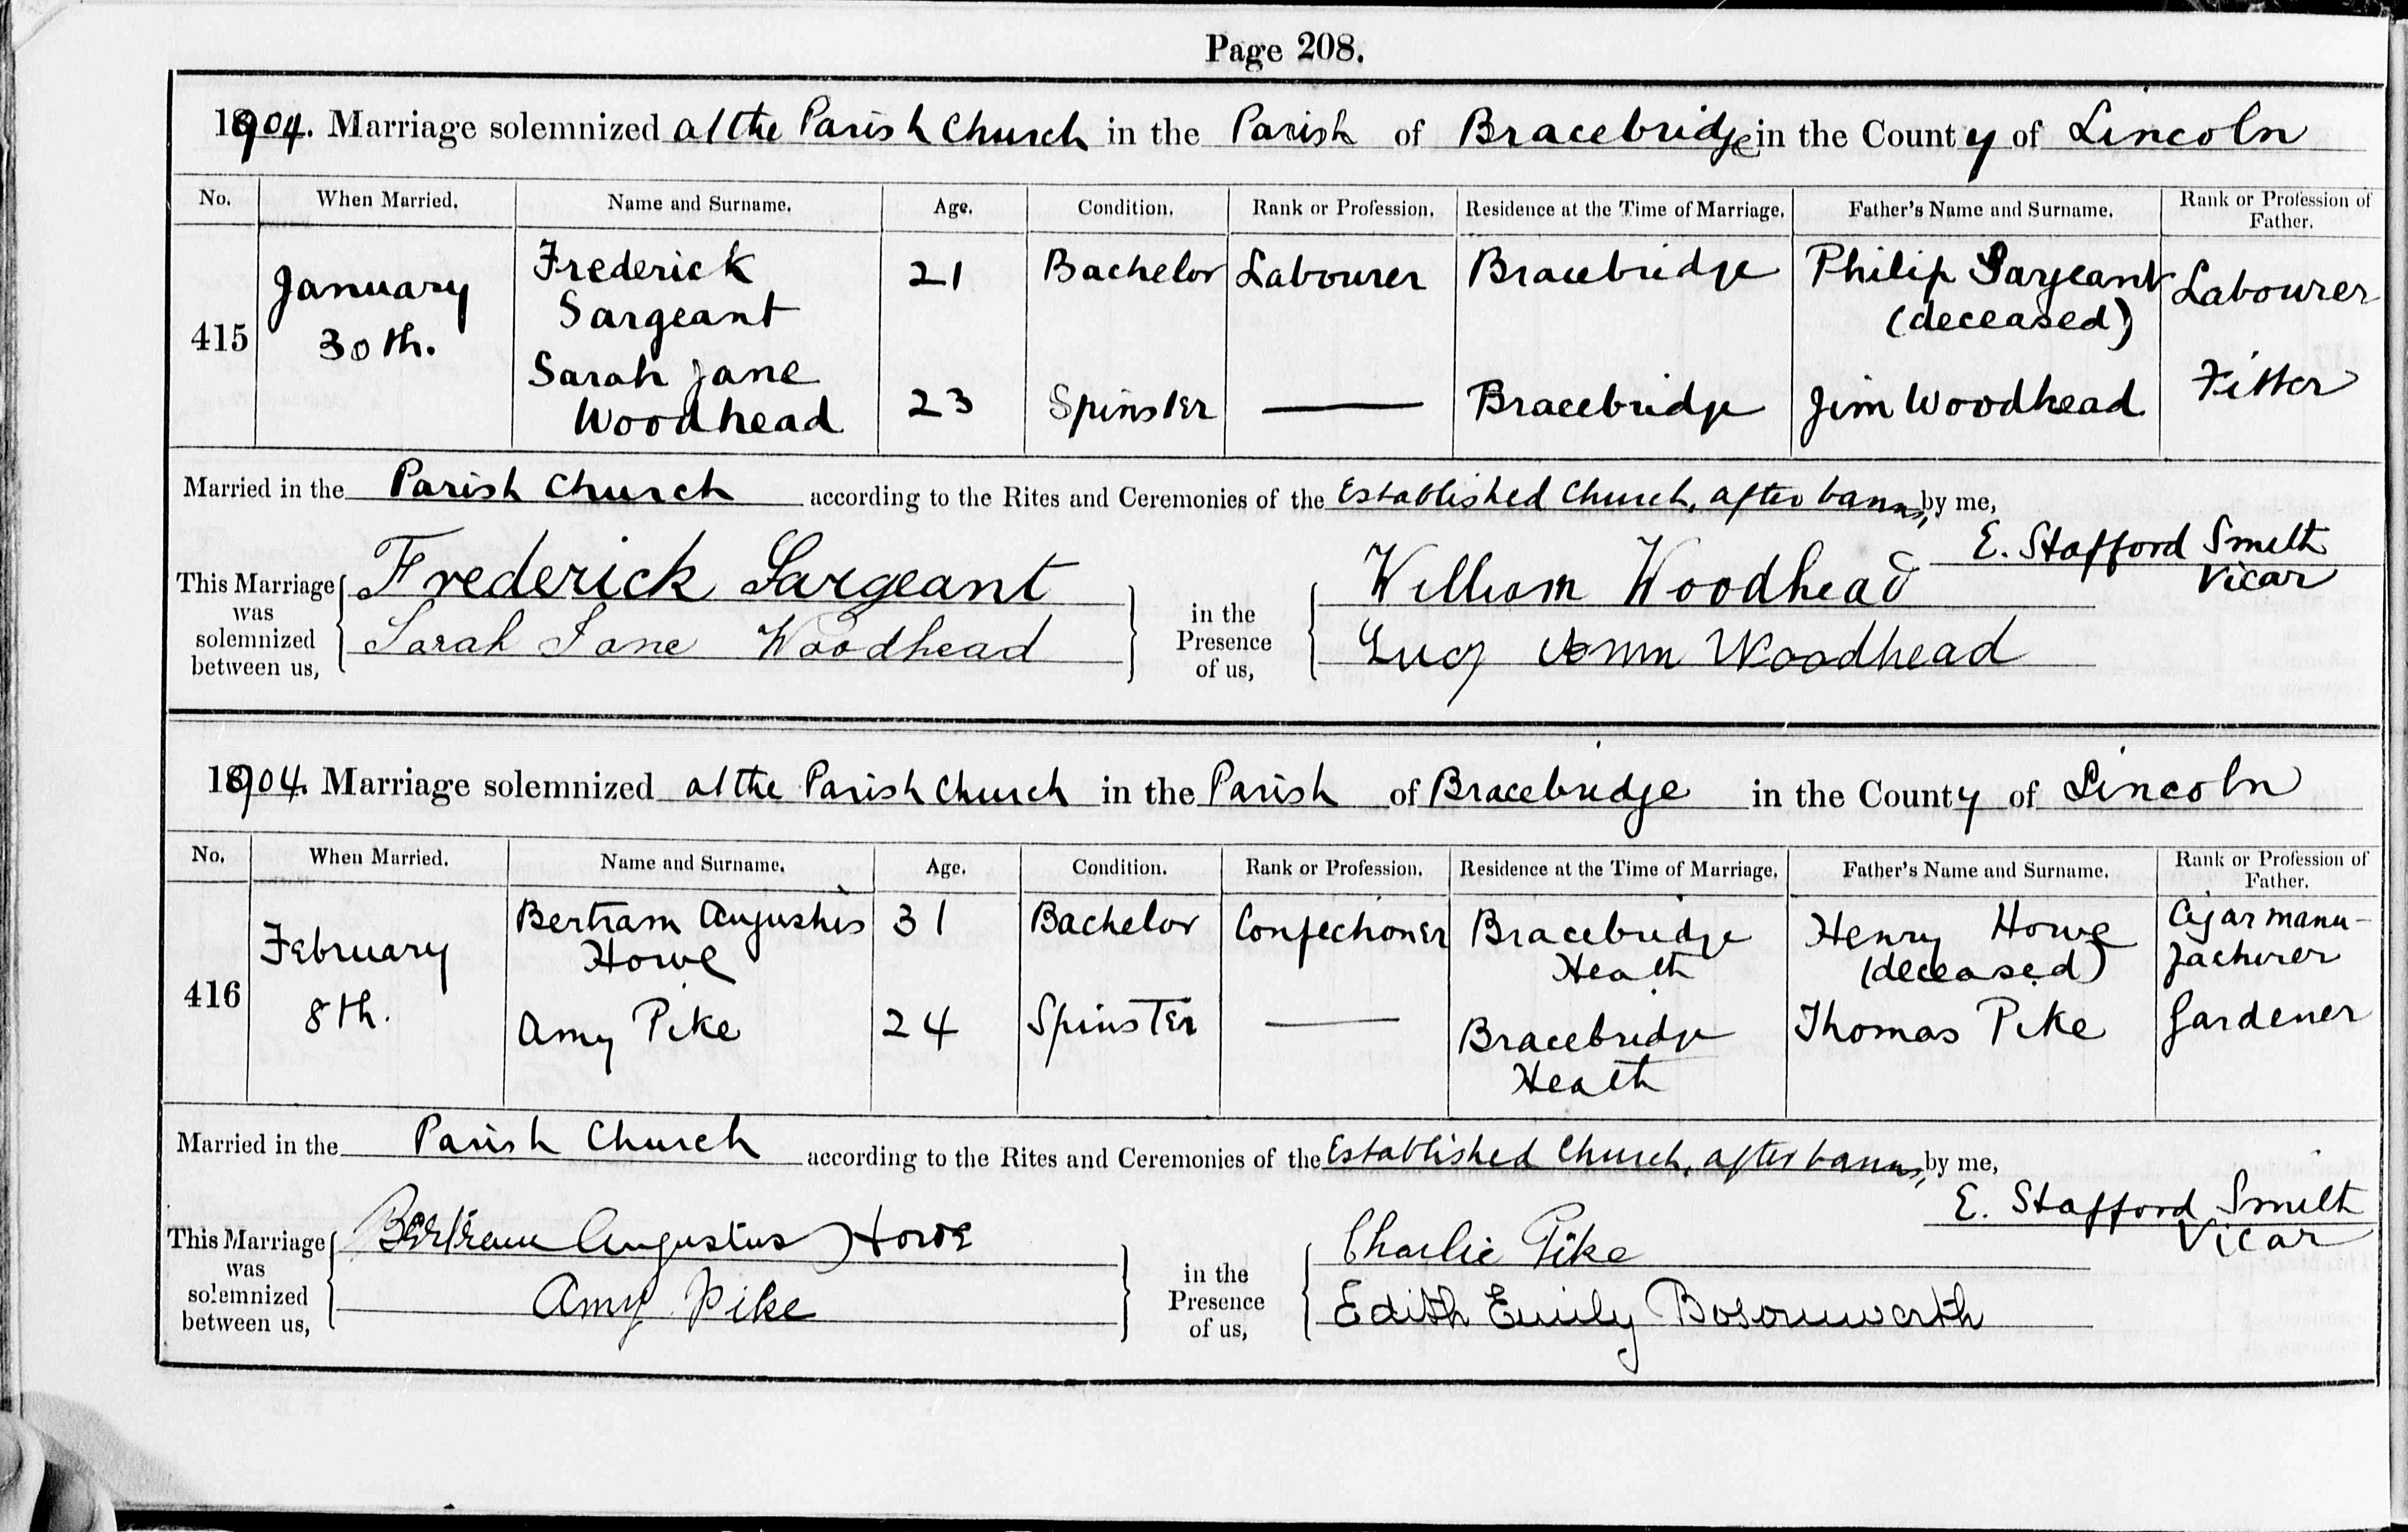 Page 208.
1904. Marriage solemnized at the Parish Church in the Parish of Bracebridge in the County of Lincoln
No. When Married. Name and Surname. Age. Condition. Rank or Profession. Residence at the Time of Marriage. Father's Name and Surname. Rank or Profession of Father.
415 January 30th. Frederick Sargeant 21 Bachelor Labourer Bracebridge Philip Sargeant (deceased) Labourer
Sarah Jane Woodhead 23 Spinster — Bracebridge Jim Woodhead Fitter
Married in the Parish Church according to the Rites and Ceremonies of the Established Church, after banns, by me,
E. Stafford Smith Vicar
This Marriage was solemnized between us, Frederick Sargeant
Sarah Jane Woodhead
in the Presence of us, William Woodhead
Lucy Ann Woodhead
1904. Marriage solemnized at the Parish Church in the Parish of Bracebridge in the County of Lincoln
No. When Married. Name and Surname. Age. Condition. Rank or Profession. Residence at the Time of Marriage. Father's Name and Surname. Rank or Profession of Father.
416 February 8th. Bertram Augustus Howe 31 Bachelor Confectioner Bracebridge Heath Henry Howe (deceased) Cigar manu-facturer
Amy Pike 24 Spinster — Bracebridge Heath Thomas Pike Gardener
Married in the Parish Church according to the Rites and Ceremonies of the Established Church, after banns, by me,
E. Stafford Smith Vicar
This Marriage was solemnized between us, Bertram Augustus Howe
Amy Pike
in the Presence of us, Charlie Pike
Edith Emily Bosomworth